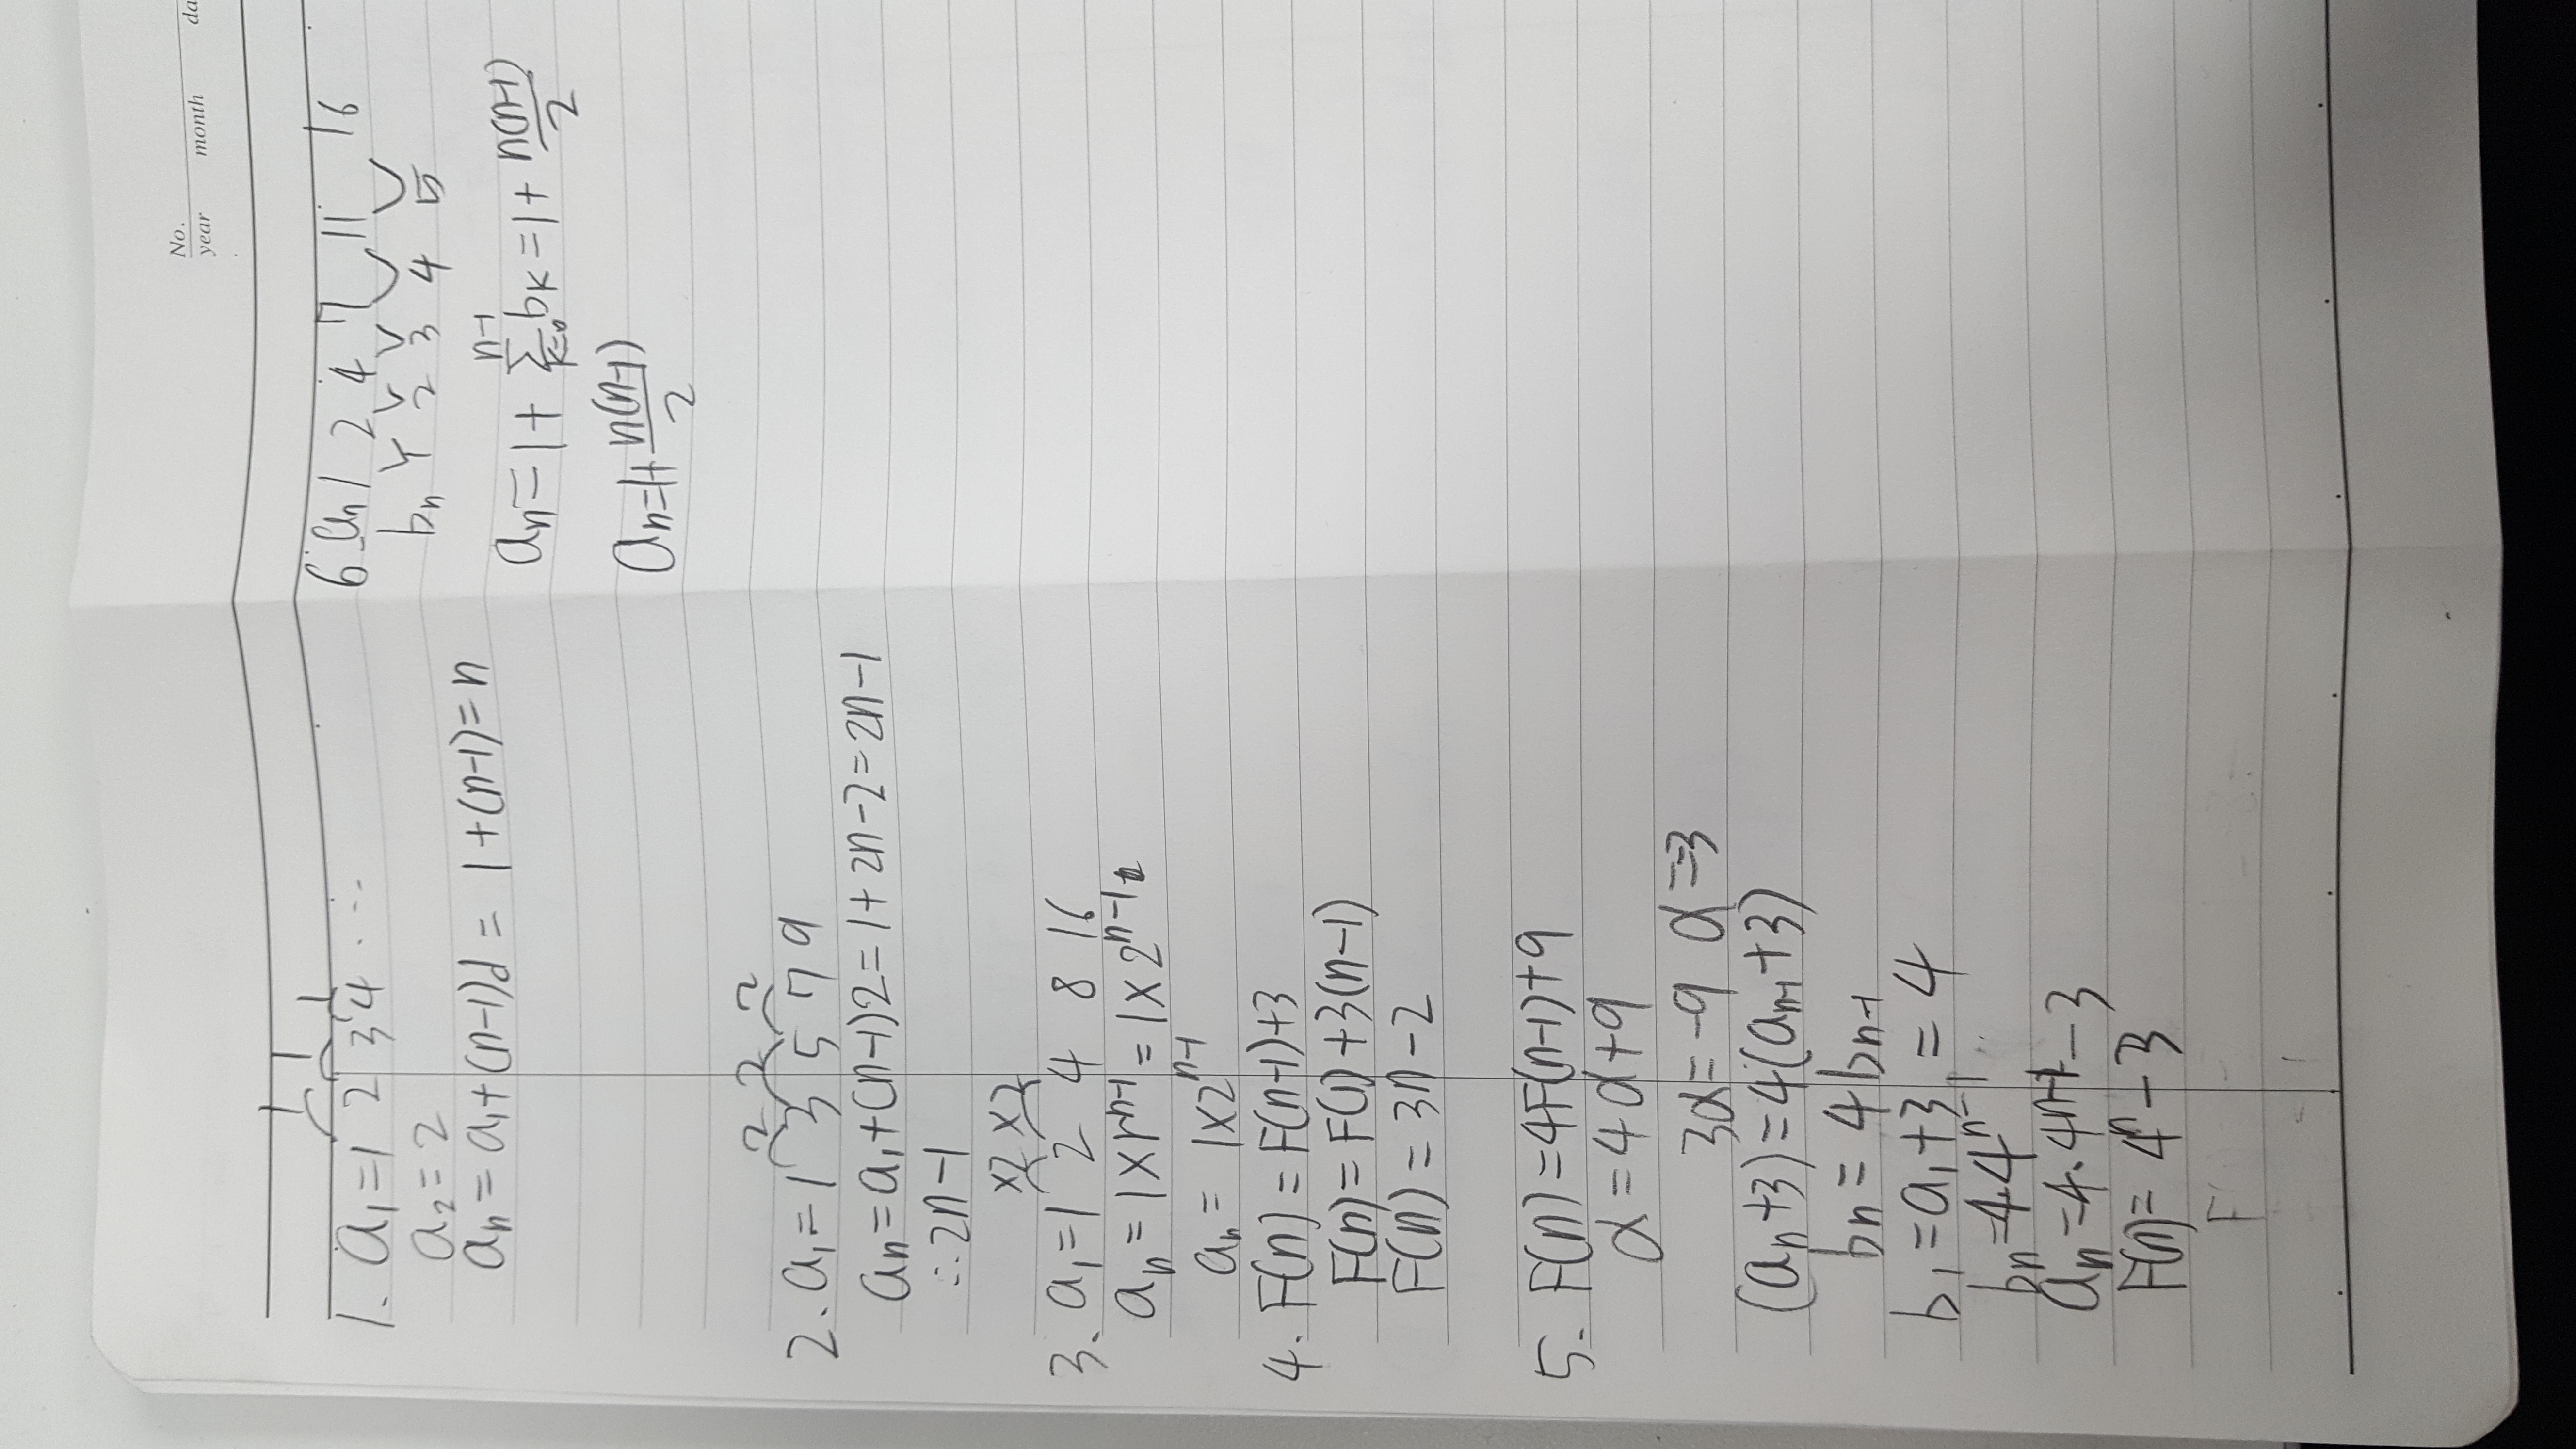 No.
year month da
1 1 1
1. a₁=1 2 3 4 ...
a₂=2
aₙ = a₁+(n-1)d = 1+(n-1)=n
2 2 2
2. a₁=1 3 5 7 9
aₙ=a₁+(n-1)2=1+2n-2=2n-1
∴2n-1
×2 ×2
3. a₁=1 2 4 8 16
aₙ=1×rⁿ⁻¹=1×2ⁿ⁻¹
aₙ= 1×2ⁿ⁻¹
4. F(n)=F(n-1)+3
F(n)=F(1)+3(n-1)
F(n)=3n-2
5. F(n)=4F(n-1)+9
α=4α+9
3α=-9 α=-3
(aₙ+3)=4(aₙ₋₁+3)
bₙ=4bₙ₋₁
b₁=a₁+3=4
bₙ=4·4ⁿ⁻¹
aₙ=4·4ⁿ⁻¹-3
F(n)=4ⁿ-3
6 aₙ 1 2 4 7 11 16
bₙ 1 2 3 4 5
aₙ=1+ n-1 Σ k=0 bₖ=1+ n(n-1)/2
aₙ=1+ n(n-1)/2